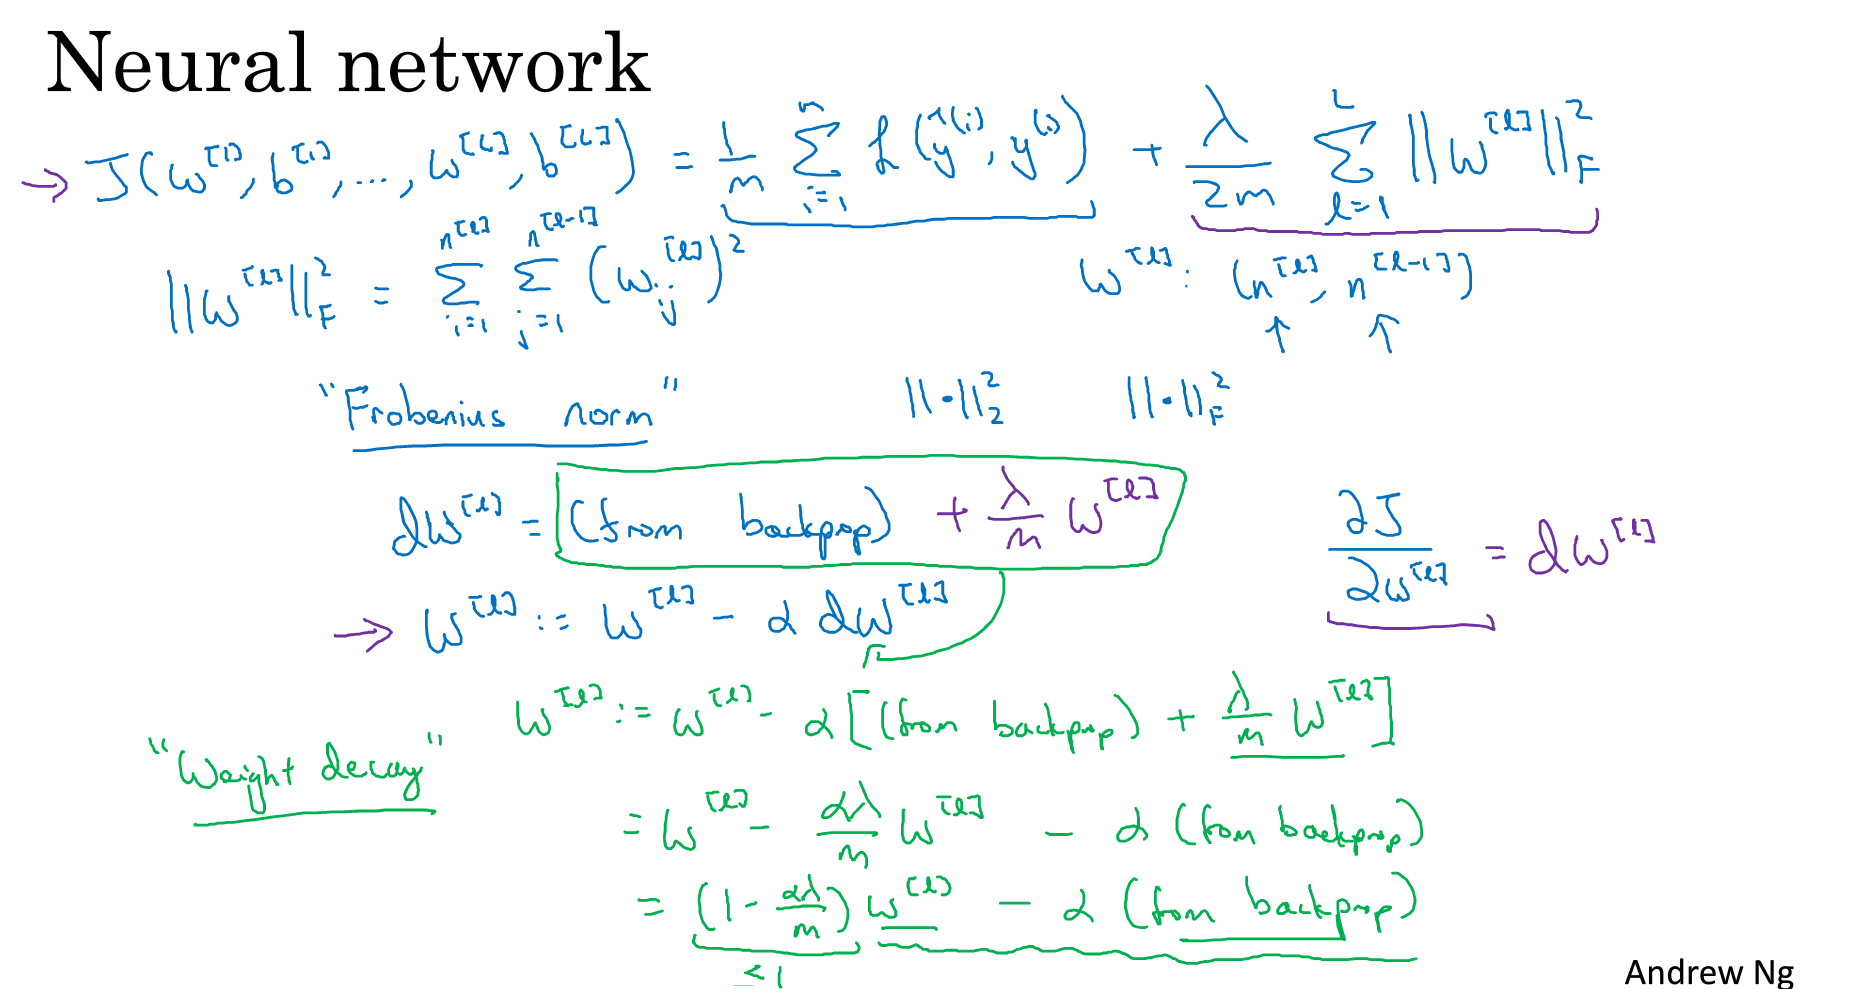 Neural network
→ J(w^[1], b^[1], ..., w^[L], b^[L]) = 1/m Σ_{i=1}^{m} L(ŷ^(i), y^(i)) + λ/2m Σ_{l=1}^{L} ||w^[l]||_F^2
||w^[l]||_F^2 = Σ_{i=1}^{n^[l]} Σ_{j=1}^{n^[l-1]} (w_ij^[l])^2 w^[l]: (n^[l], n^[l-1])
↑ ↑
"Frobenius norm" ||·||_2^2 ||·||_F^2
dw^[l] = (from backprop) + λ/m w^[l] ∂J/∂w^[l] = dw^[l]
→ w^[l] := w^[l] - α dw^[l]
w^[l] := w^[l] - α[(from backprop) + λ/m w^[l]]
"Weight decay"
= w^[l] - αλ/m w^[l] - α(from backprop)
= (1 - αλ/m) w^[l] - α(from backprop)
<1
Andrew Ng